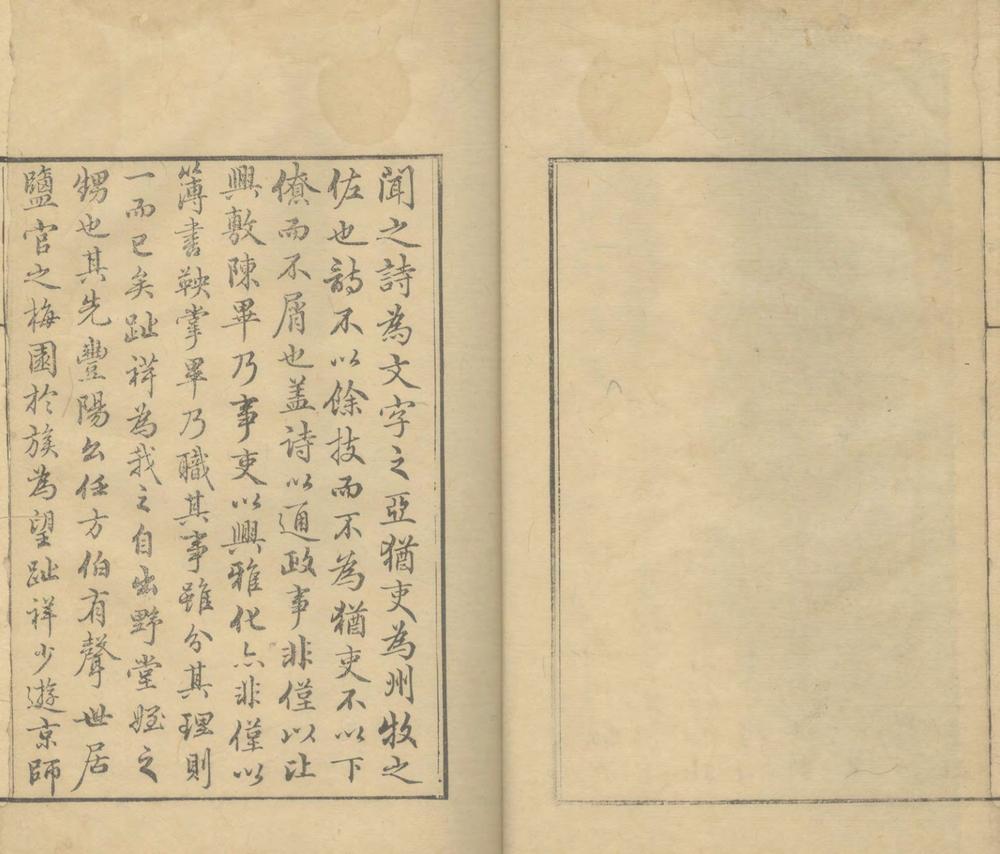 聞之詩為文字之亞猶吏為州牧之
佐也詩不以餘技而不為猶吏不以下
僚而不屑也盖詩以通政事非僅以比
興敷陳畢乃事吏以興雅化亦非僅以
簿書鞅掌畢乃職其事雖分其理則
一而已矣趾祥為我之自出野堂姪之
甥也其先豐陽公任方伯有聲世居
鹽官之梅園於族為望趾祥少遊京師